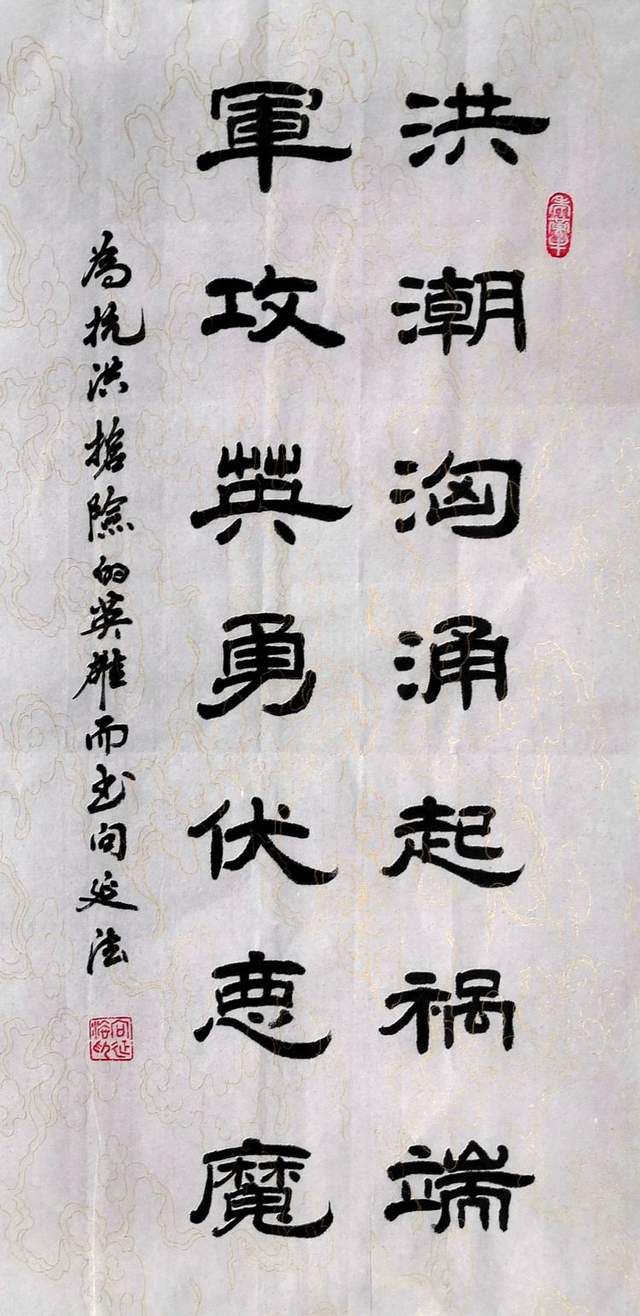 洪潮汹涌起祸端
軍攻英勇伏恶魔
為抗洪搶險的英雄而书向延法